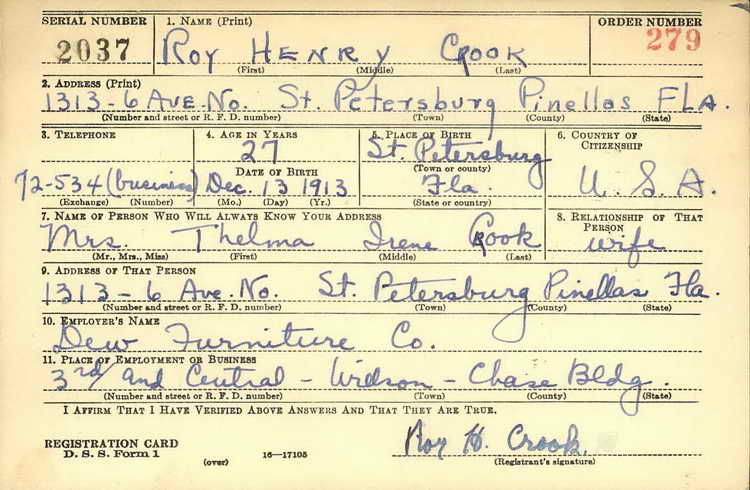 SERIAL NUMBER 1. NAME (Print) ORDER NUMBER
2037 ROY HENRY CROOK 279
(First) (Middle) (Last)
2. ADDRESS (Print)
1313-6 AVE. No. St. Petersburg Pinellas FLA.
(Number and street or R. F. D. number) (Town) (County) (State)
3. TELEPHONE 4. AGE IN YEARS 5. PLACE OF BIRTH 6. COUNTRY OF CITIZENSHIP
27 St. Petersburg
DATE OF BIRTH (Town or county)
72-534 (business) Dec. 13 1913 Fla. U. S. A.
(Exchange) (Number) (Mo.) (Day) (Yr.) (State or country)
7. NAME OF PERSON WHO WILL ALWAYS KNOW YOUR ADDRESS 8. RELATIONSHIP OF THAT PERSON
Mrs. Thelma Irene Crook wife
(Mr., Mrs., Miss) (First) (Middle) (Last)
9. ADDRESS OF THAT PERSON
1313-6 Ave. No. St. Petersburg Pinellas Fla.
(Number and street or R. F. D. number) (Town) (County) (State)
10. EMPLOYER'S NAME
Dew Furniture Co.
11. PLACE OF EMPLOYMENT OR BUSINESS
3rd and Central - Wilson - Chase Bldg.
(Number and street or R. F. D. number) (Town) (County) (State)
I AFFIRM THAT I HAVE VERIFIED ABOVE ANSWERS AND THAT THEY ARE TRUE.
REGISTRATION CARD Roy H. Crook
D. S. S. Form 1 (over) 16-17105 (Registrant's signature)